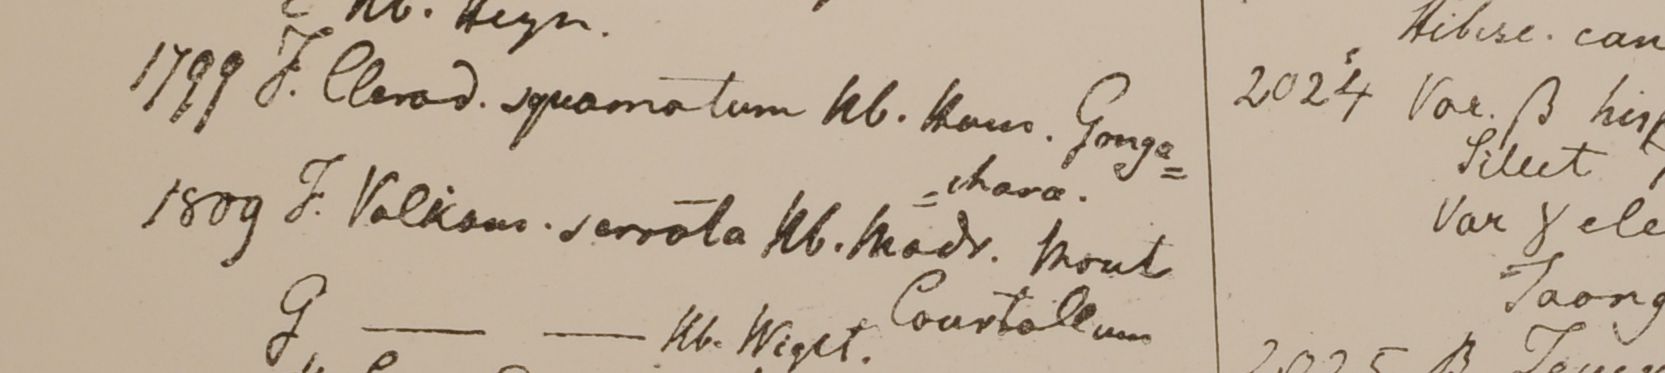 Hb. Heyn.
1799 F. Clerod. squamatum Hb. Ham. Gonga=
=chara.
1809 F. Volkam. serrata Hb. Madr. Mont
Courtallum
G — — Hb. Wight.
Hibisc. can
2024 Var. β hisp
Sillet
Var γ ele
Taong
2025 β